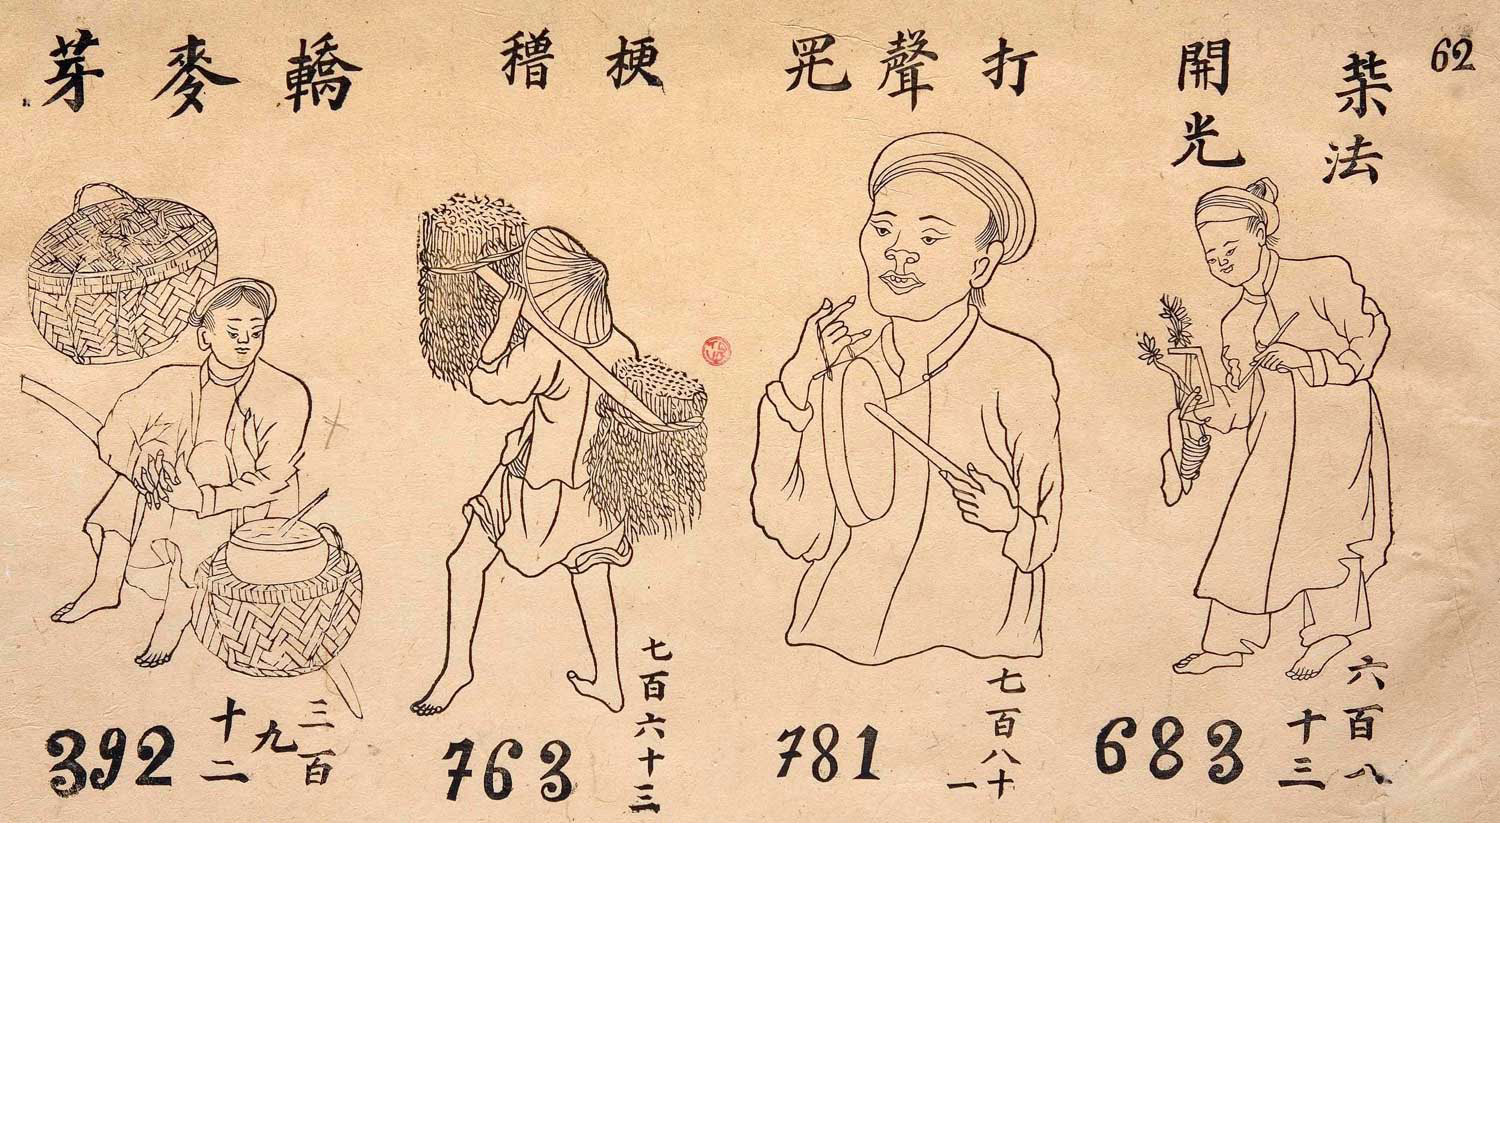 62
葉法
開光
打聲罖
梗穭
轎麥芽
六百八
十三
683
七百八十
一
781
七百六十三
763
三百
九
十二
392